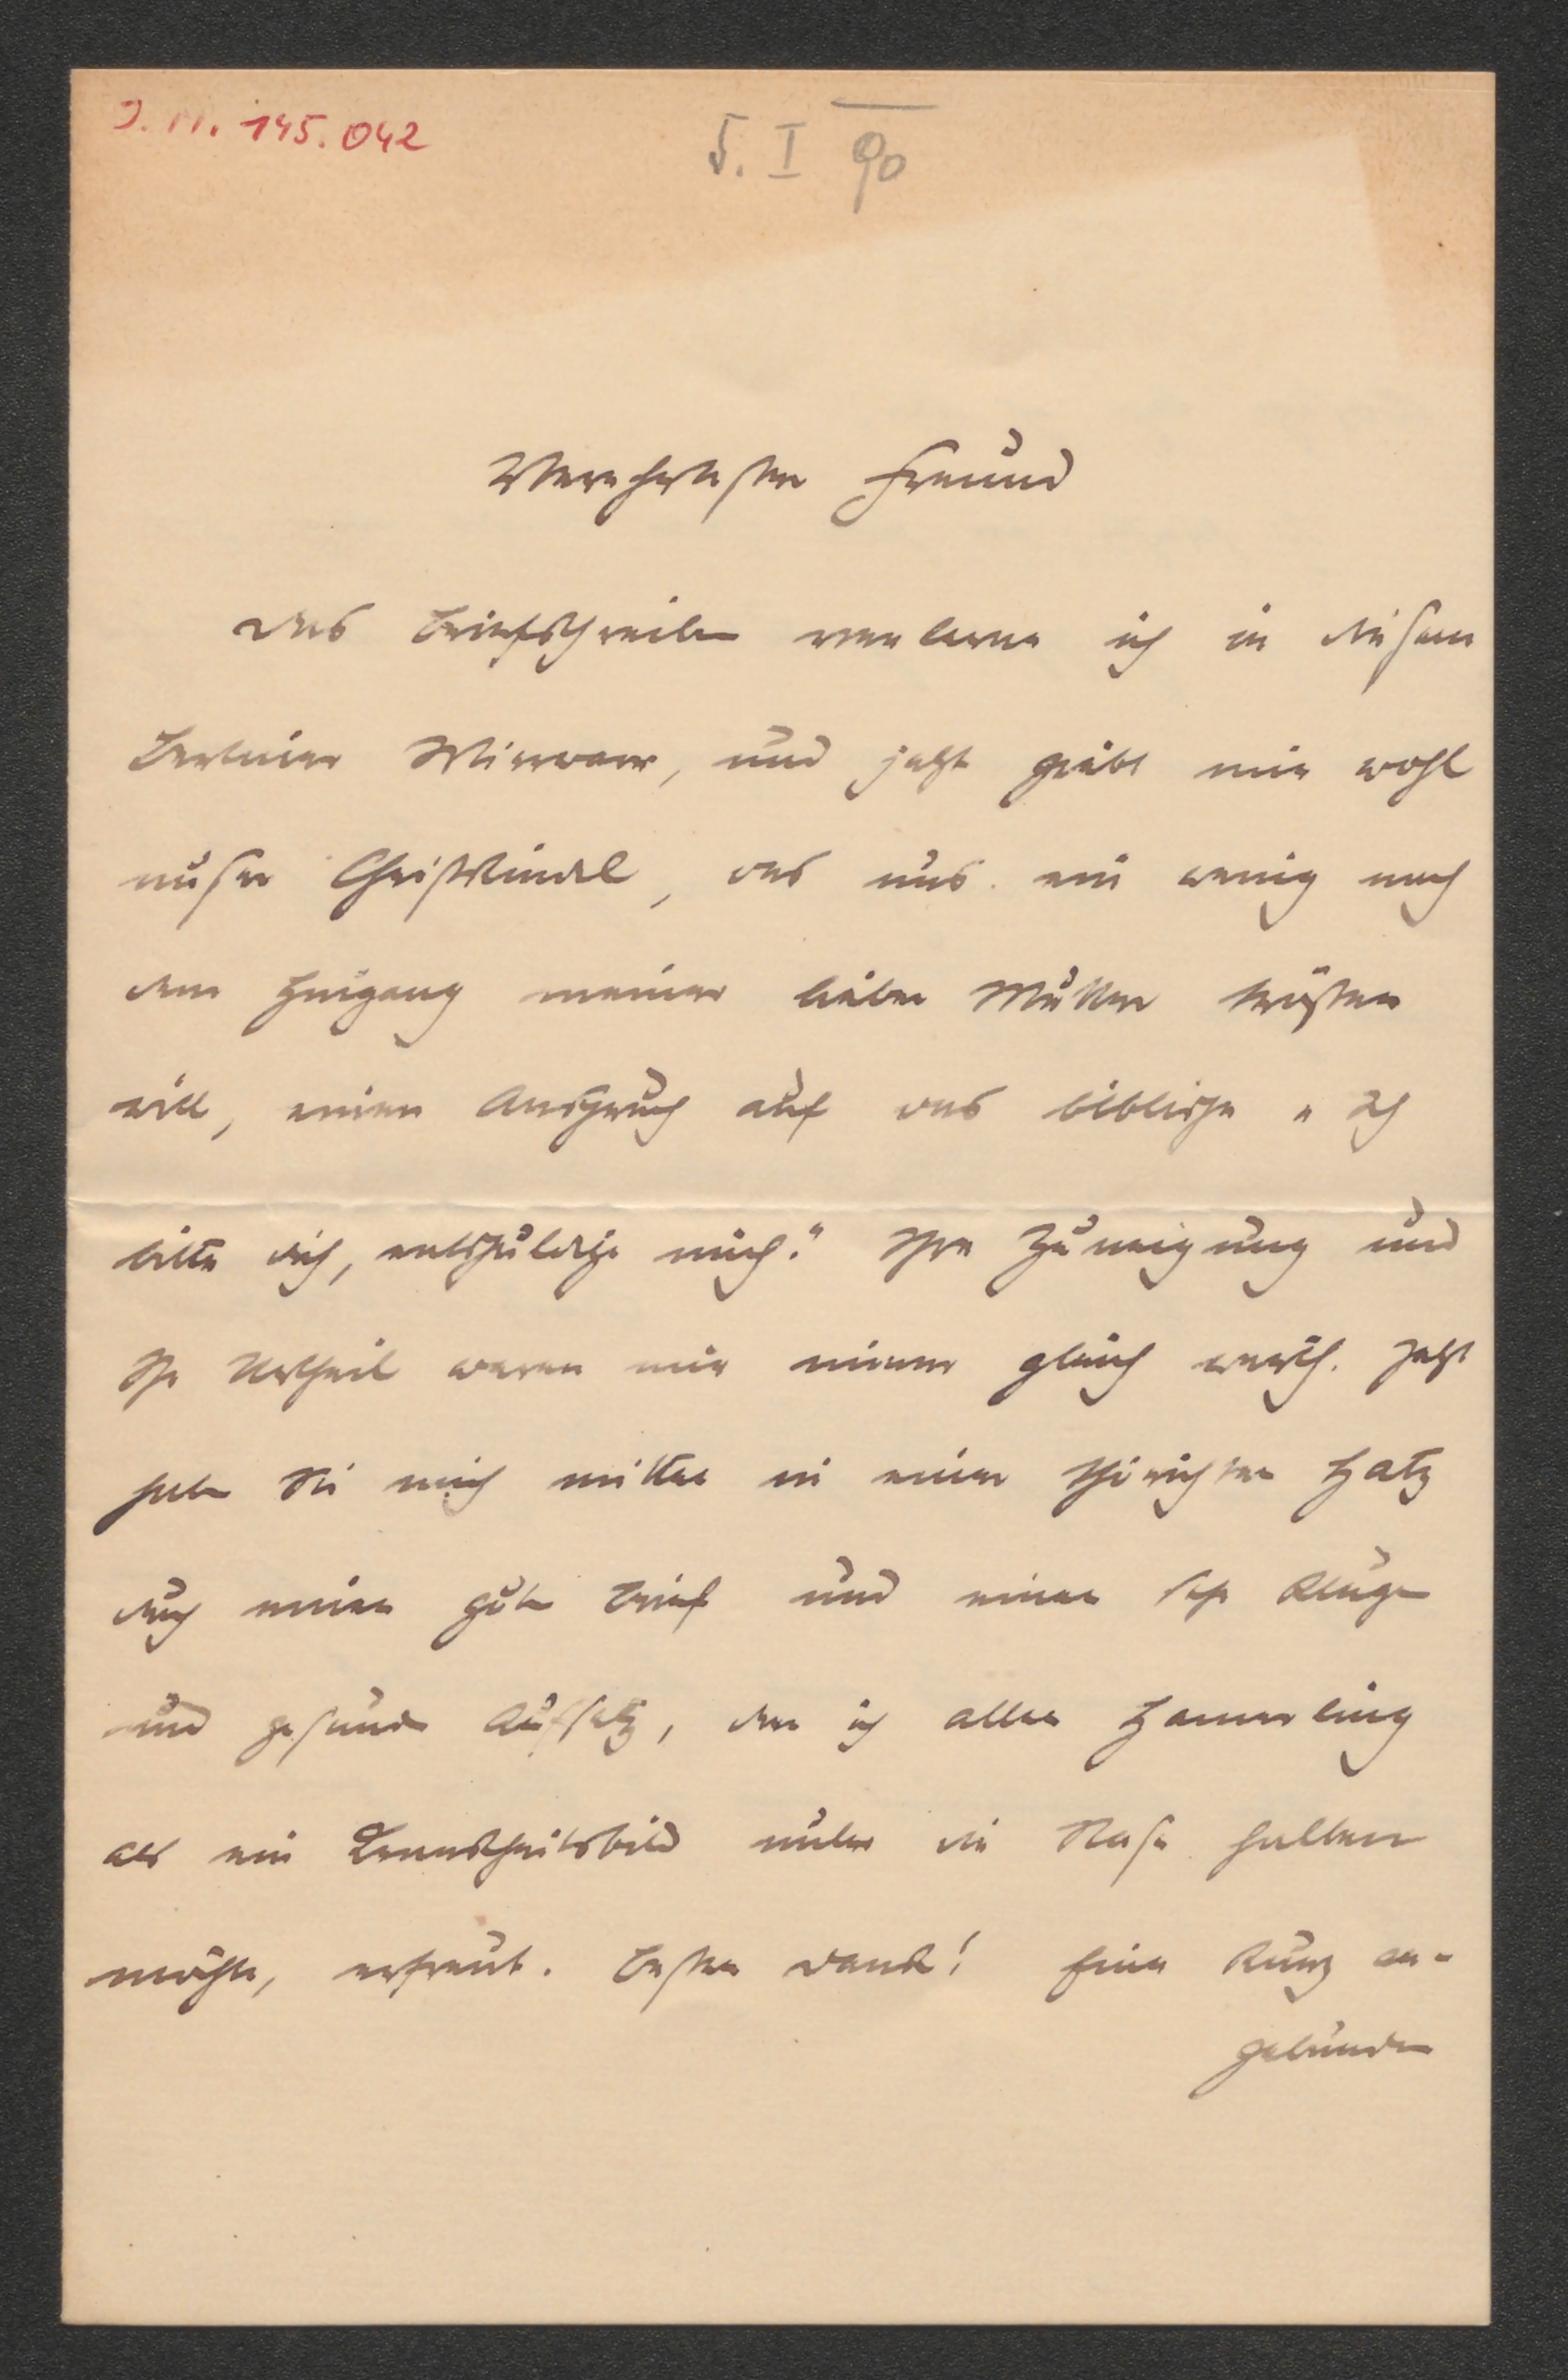 I. N. 145.042
5. I 90
Verehrtester Freund
das Briefschreiben verlerne ich in diesem
Berliner Wirrwarr, und jetzt giebt mir wohl
unser Christkindel, das uns ein wenig nach
dem Heimgang meiner lieben Mutter trösten
will, einen Anspruch auf das biblische „Ich
bitte dich, entschuldige mich." Ihre Zuneigung und
Ihr Urtheil waren mir immer gleich werth. Jetzt
haben Sie mich mitten in einer thörichten Hatz
durch einen guten Brief und einen sehr klugen
und gesunden Aufsatz, den ich allen Hamerling
als ein Krankheitsbild unter die Nase halten
möchte, erfreut. Besten Dank! Eine kurz an-
gebunden